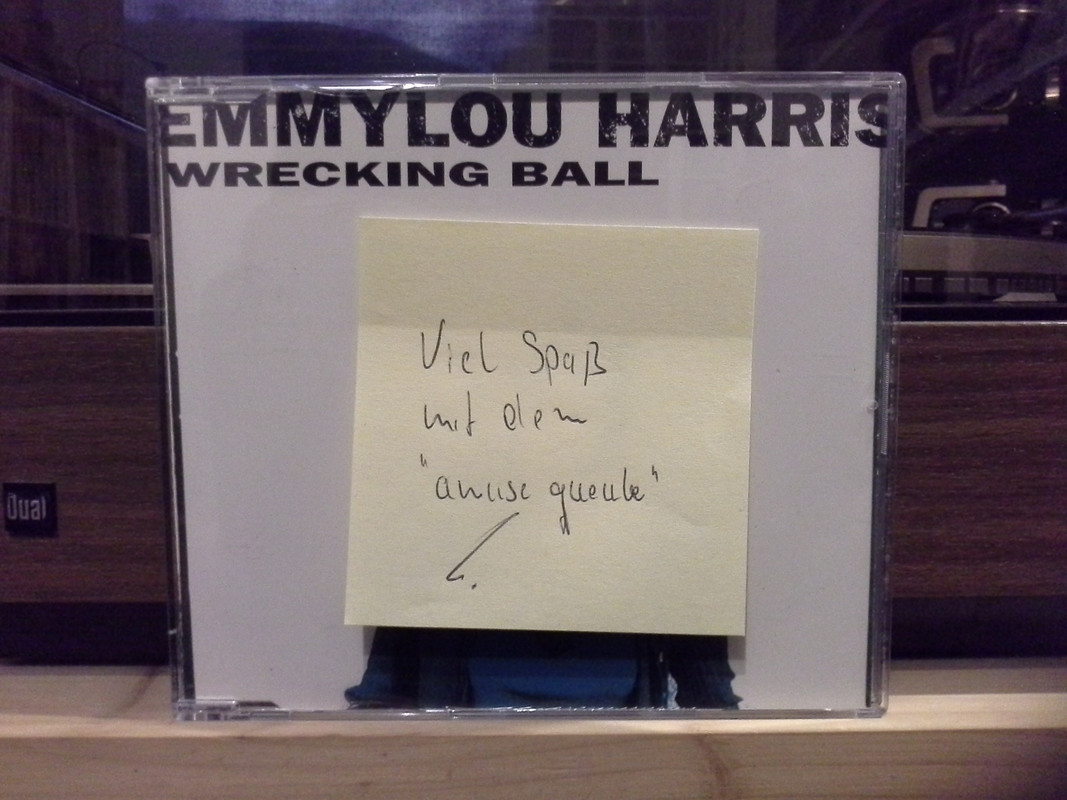 EMMYLOU HARRIS
WRECKING BALL
Viel Spaß
mit dem
"amuse gueule"
L.
Dual